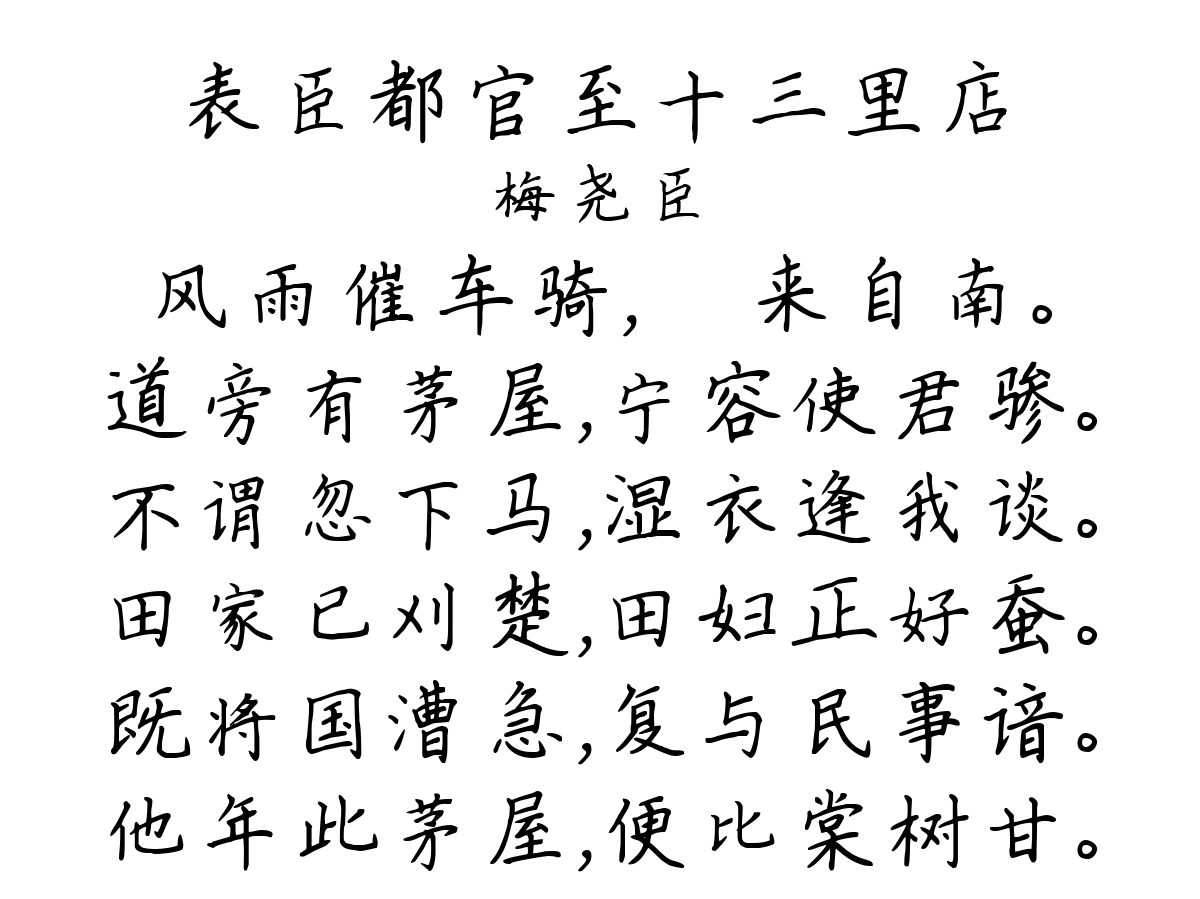 表臣都官至十三里店
梅尧臣
风雨催车骑, 来自南。
道旁有茅屋,宁容使君骖。
不谓忽下马,湿衣逢我谈。
田家已刈楚,田妇正好蚕。
既将国漕急,复与民事谙。
他年此茅屋,便比棠树甘。